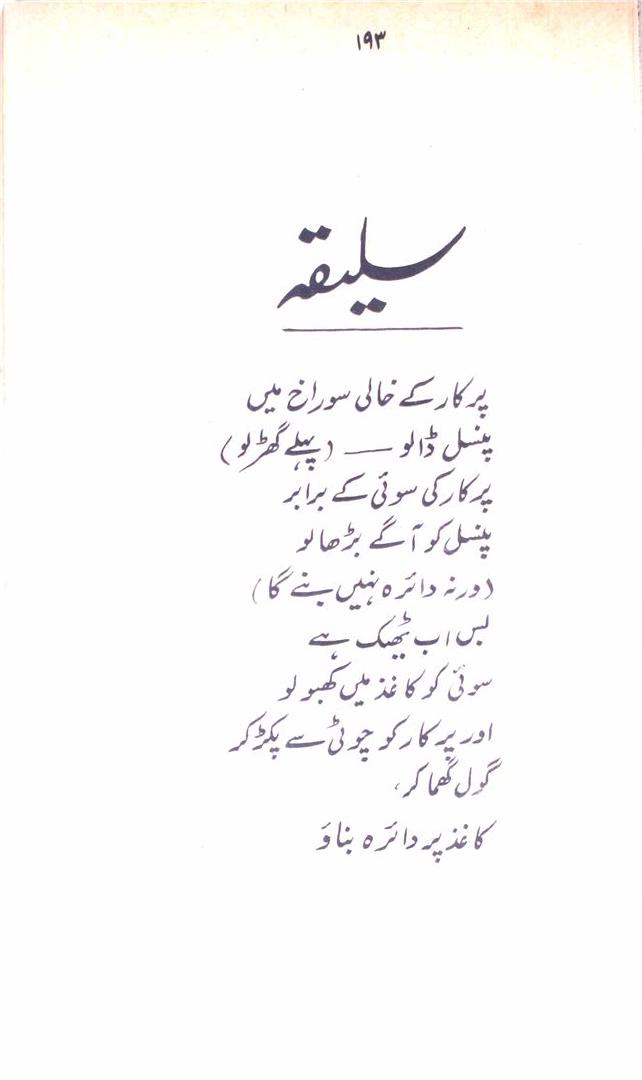 ۱۹۳
سلیقہ
پرکار کے خالی سوراخ میں
پنسل ڈالو — (پہلے گھڑ لو)
پرکار کی سوئی کے برابر
پنسل کو آگے بڑھا لو
(ورنہ دائرہ نہیں بنے گا)
بس اب ٹھیک ہے
سوئی کو کاغذ میں کھبو لو
اور پرکار کو چوٹی سے پکڑ کر
گول گھما کر،
کاغذ پر دائرہ بناؤ